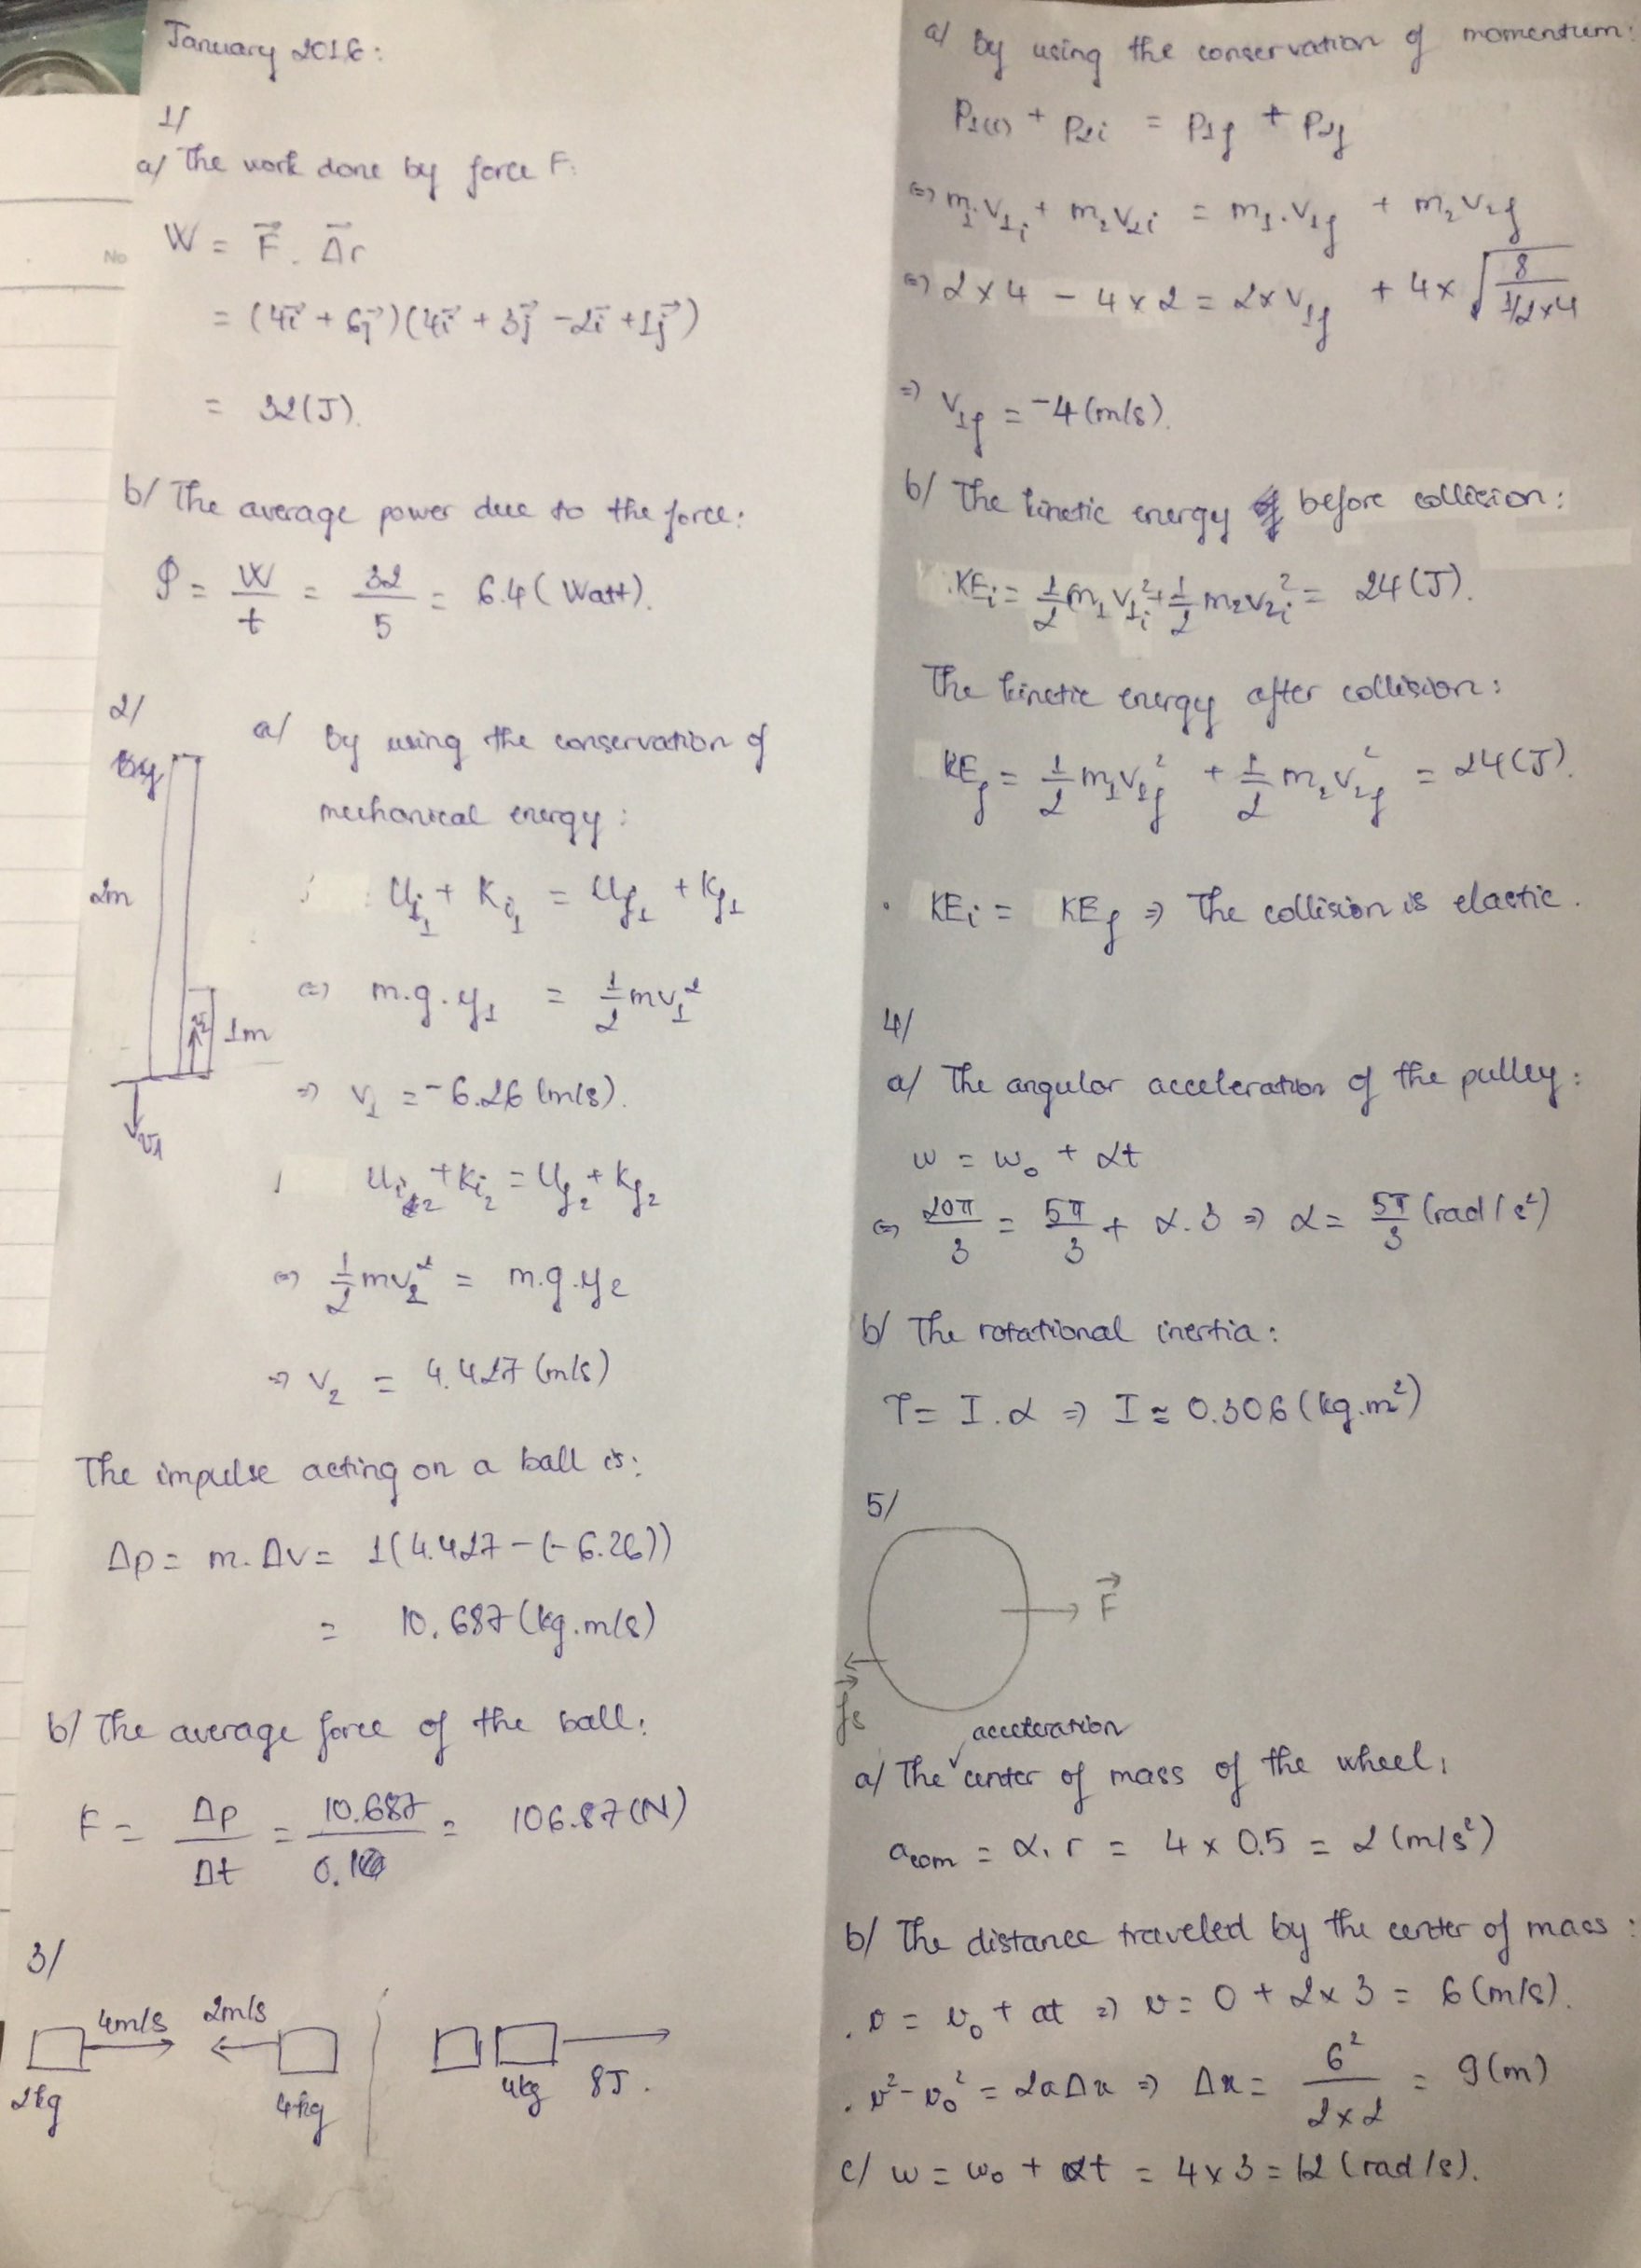 January 2016:
1/
a/ The work done by force F:
W = F⃗ . Δ⃗r
= (4i⃗ + 6j⃗)(4i⃗ + 3j⃗ - 2i⃗ + 1j⃗)
= 32(J).
b/ The average power due to the force:
P = W/t = 32/5 = 6.4 (Watt).
2/
2m
1m
v₂
v₁
a/ By using the conservation of
mechanical energy:
Ui₁ + Ki₁ = Uf₁ + Kf₁
(=) m.g.y₁ = 1/2 mv₁²
=) v₁ = -6.26 (m/s).
Ui₂ + Ki₂ = Uf₂ + Kf₂
(=) 1/2 mv₂² = m.g.y₂
=) v₂ = 4.427 (m/s)
The impulse acting on a ball is:
Δp = m.Δv = 1(4.427 - (-6.26))
= 10.687 (kg.m/s)
b/ The average force of the ball:
F = Δp/Δt = 10.687/0.1 = 106.87(N)
3/
4m/s 2m/s
2kg 4kg 4kg 8J.
a/ By using the conservation of momentum:
P₁(i) + P₂i = P₁f + P₂f
(=) m₁.v₁i + m₂v₂i = m₁.v₁f + m₂v₂f
(=) 2 x 4 - 4 x 2 = 2 x v₁f + 4 x √(8/(1/2 x 4))
=) v₁f = -4 (m/s).
b/ The kinetic energy before collision:
KEi = 1/2 m₁v₁i² + 1/2 m₂v₂i² = 24 (J).
The kinetic energy after collision:
KEf = 1/2 m₁v₁f² + 1/2 m₂v₂f² = 24 (J).
. KEi = KEf =) The collision is elastic.
4/
a/ The angular acceleration of the pulley:
w = w₀ + αt
(=) 20π/3 = 5π/3 + α.3 =) α = 5π/3 (rad/s²)
b/ The rotational inertia:
τ = I.α =) I ≈ 0.306 (kg.m²)
5/
F⃗
f⃗s
acceleration
a/ The center of mass of the wheel:
acom = α.r = 4 x 0.5 = 2 (m/s²)
b/ The distance traveled by the center of mass:
. v = v₀ + at =) v = 0 + 2 x 3 = 6 (m/s).
. v² - v₀² = 2aΔx =) Δx = 6²/(2 x 2) = 9(m)
c/ w = w₀ + αt = 4 x 3 = 12 (rad/s).
No